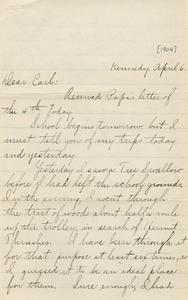 [1904]
Kennedy, April 6.
Dear Carl:
Received Papa's letter of
the 4th today.
School begins tomorrow, but I
must tell you of my trips today
and yesterday.
Yesterday I saw a Tree Swallow
before I had left the school grounds.
In the evening, I went through
the tract of woods about half a mile
up the trolley, in search of Hermit
Thrushes. I have been through it
for that purpose at least six times, so
I guessed it to be an ideal place
for them. Sure enough, I had